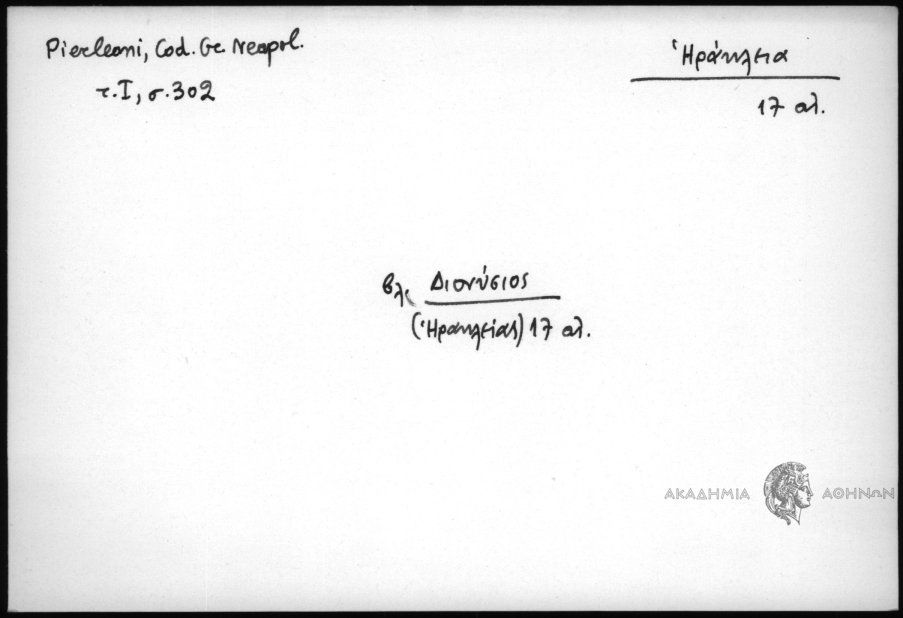 Pierleoni, Cod. Gr. Neapol.
τ. I, σ. 302
Ἡράκλεια
17 αἰ.
βλ. Διονύσιος
(Ἡρακλείας) 17 αἰ.
ΑΚΑΔΗΜΙΑ ΑΘΗΝΩΝ